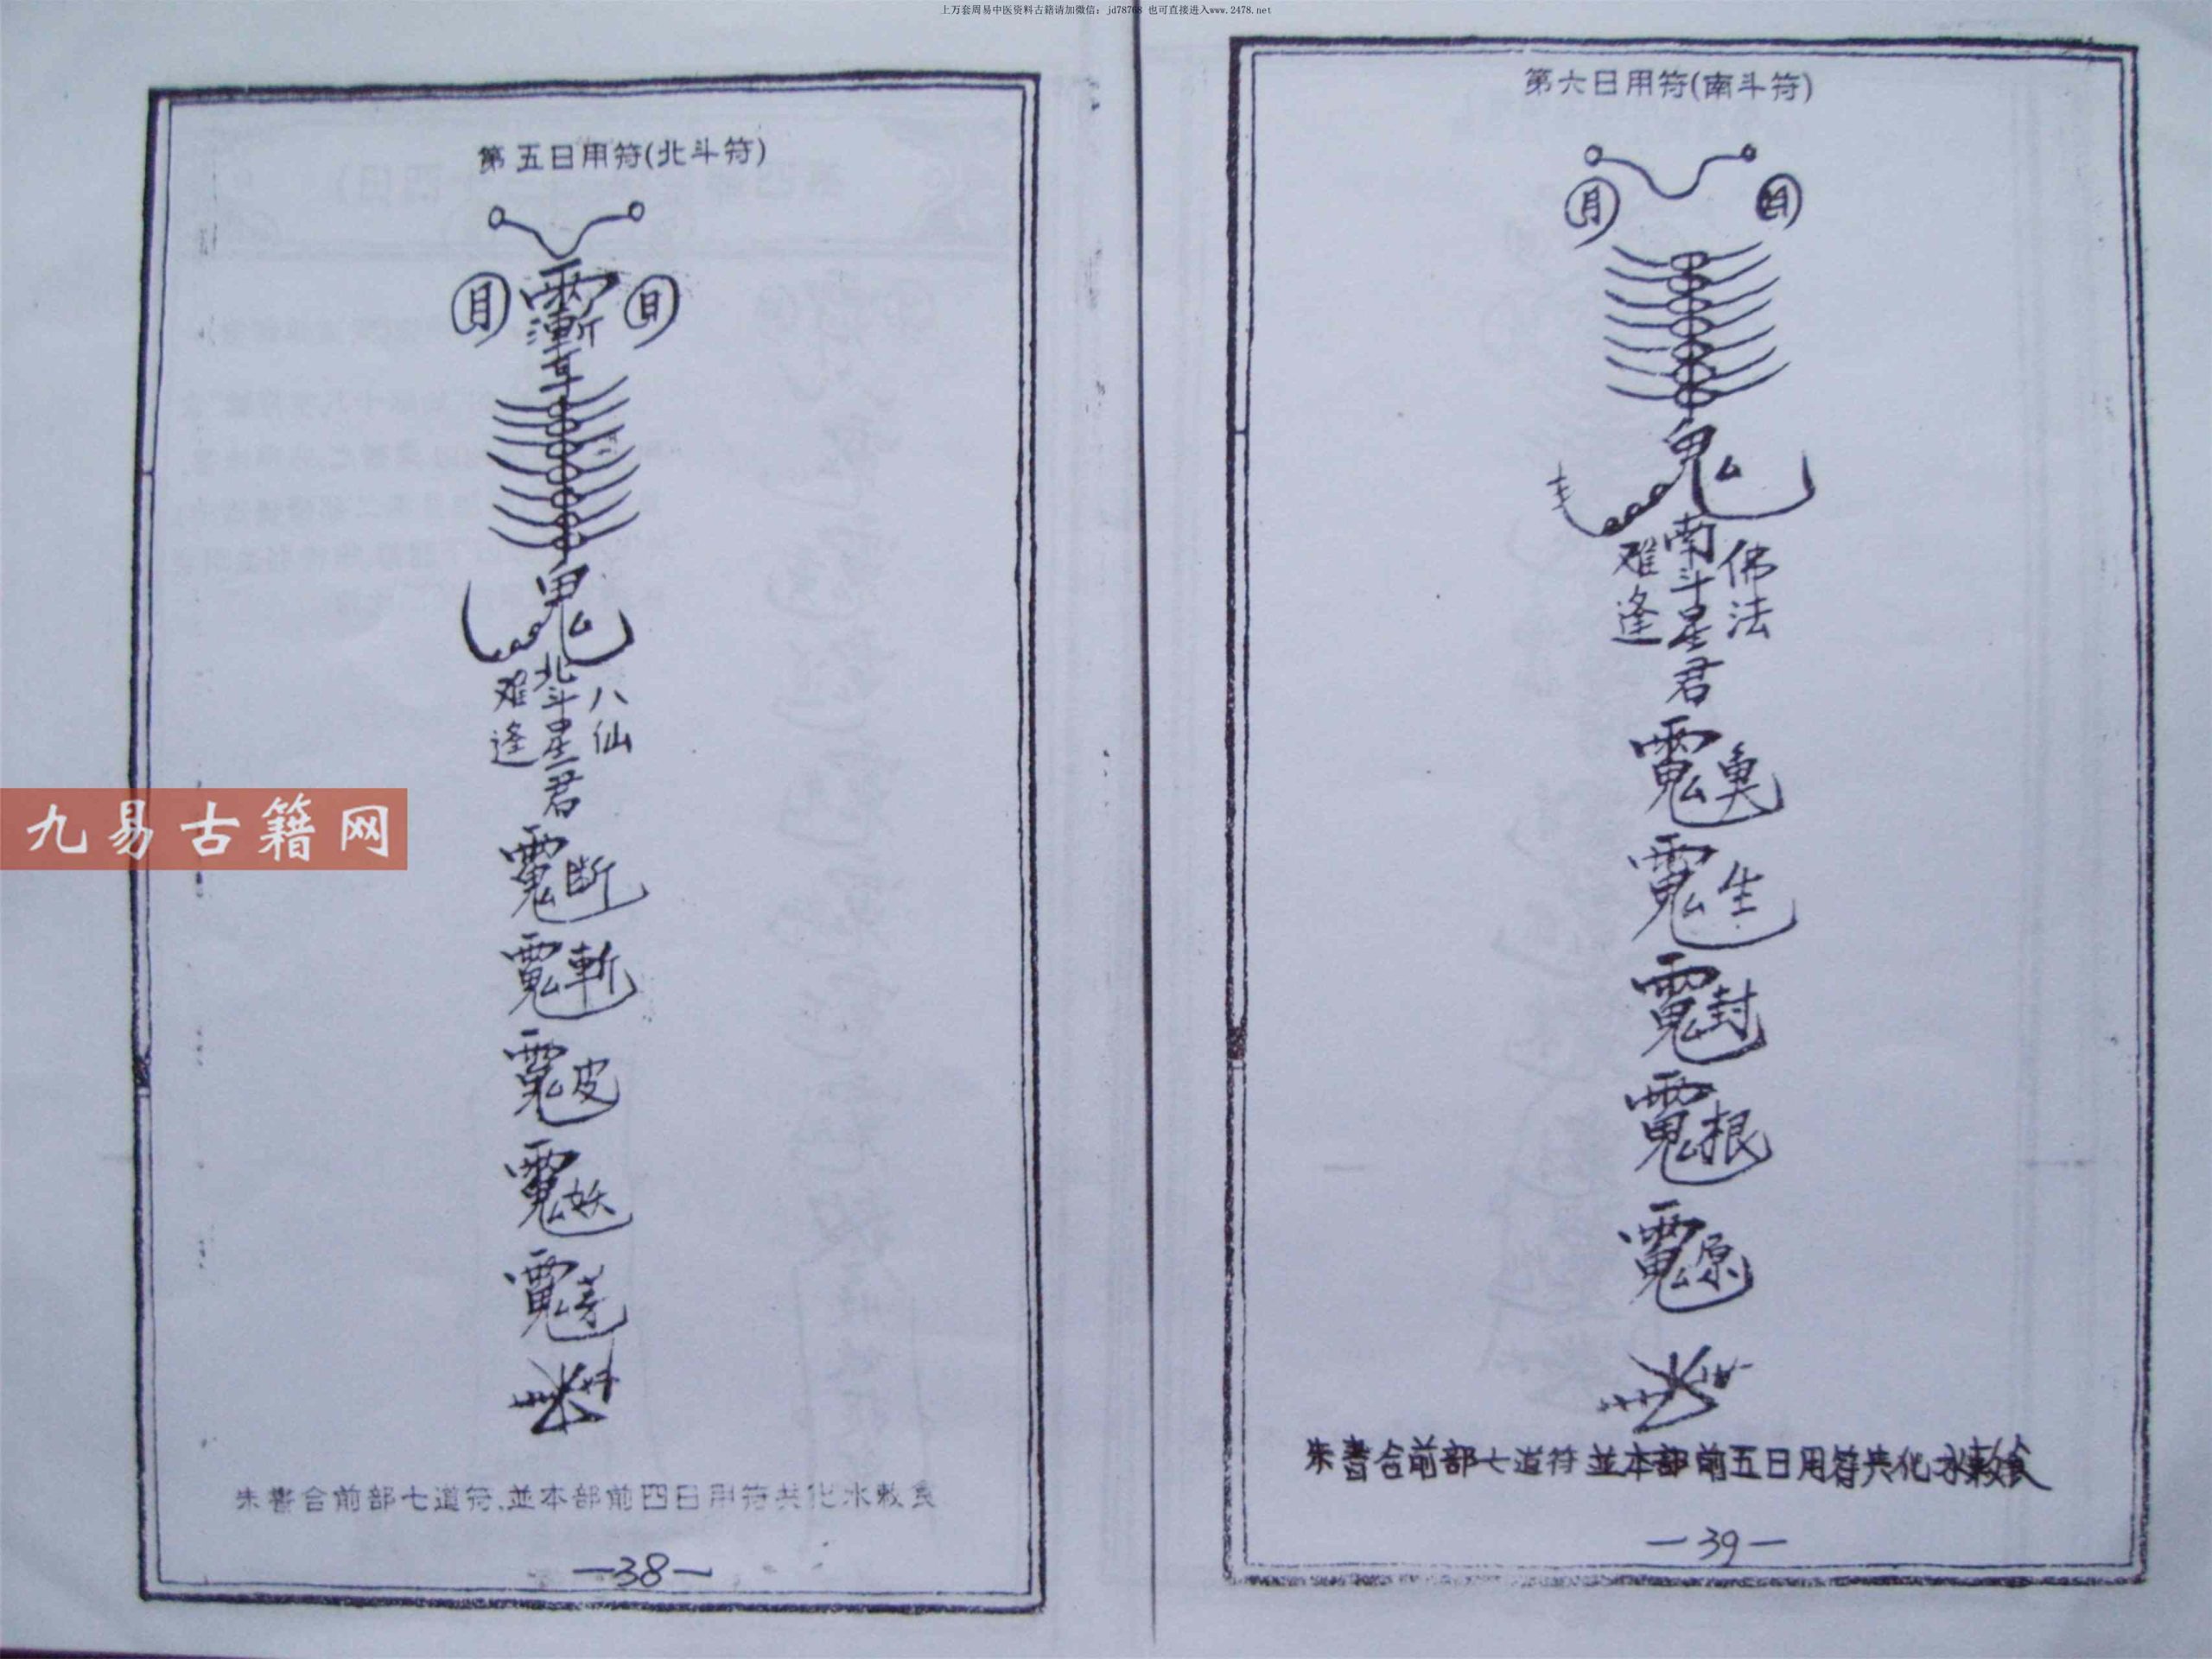 上万套周易中医资料古籍请加微信：jd78768 也可直接进入www.2478.net
第五日用符(北斗符)
月
日
鬼
北斗星君
八仙
难逢
斷
斬
皮
妖
朱書合前部七道符、並本部前四日用符共化水敕食
—38—
第六日用符(南斗符)
月
鬼
南斗星君
佛法
难逢
生
封
根
原
朱書合前部七道符並本部前五日用符共化水敕食
—39—
九易古籍网